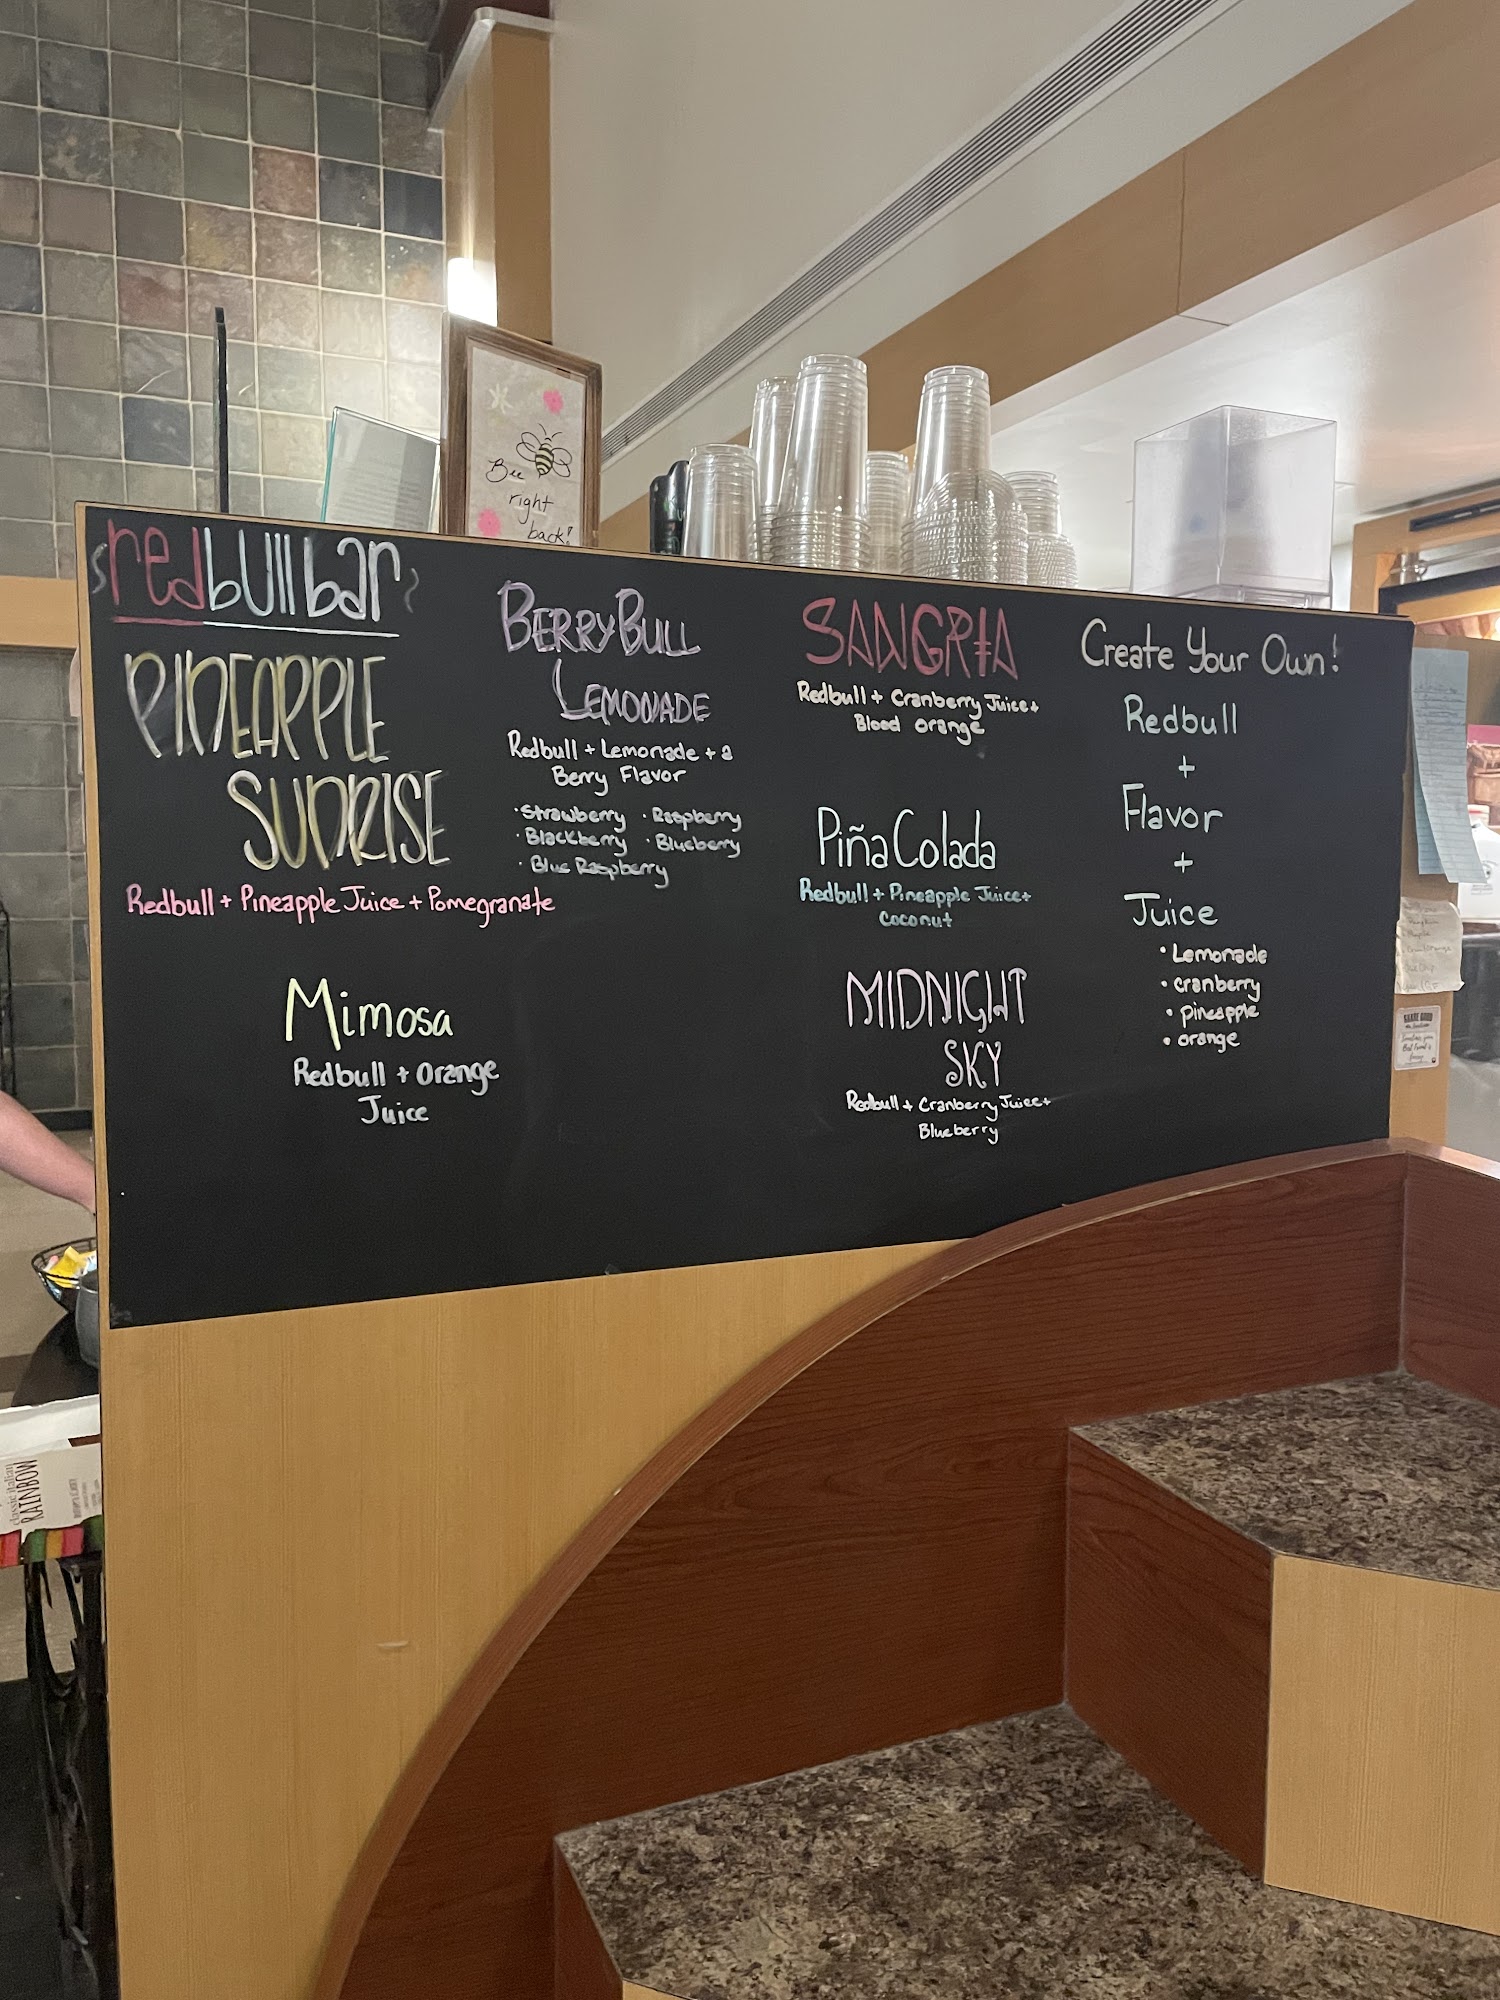 Bee
right
back!
redbull bar
PINEAPPLE
SUNRISE
Redbull + Pineapple Juice + Pomegranate
Mimosa
Redbull + Orange
Juice
BERRY BULL
LEMONADE
Redbull + Lemonade + a
Berry Flavor
· Strawberry · Raspberry
· Blackberry · Blueberry
· Blue Raspberry
SANGRIA
Redbull + Cranberry Juice +
Blood orange
Piña Colada
Redbull + Pineapple Juice +
Coconut
MIDNIGHT
SKY
Redbull + Cranberry Juice +
Blueberry
Create Your Own!
Redbull
+
Flavor
+
Juice
• Lemonade
• cranberry
• pineapple
• orange
classic italian
RAINBOW